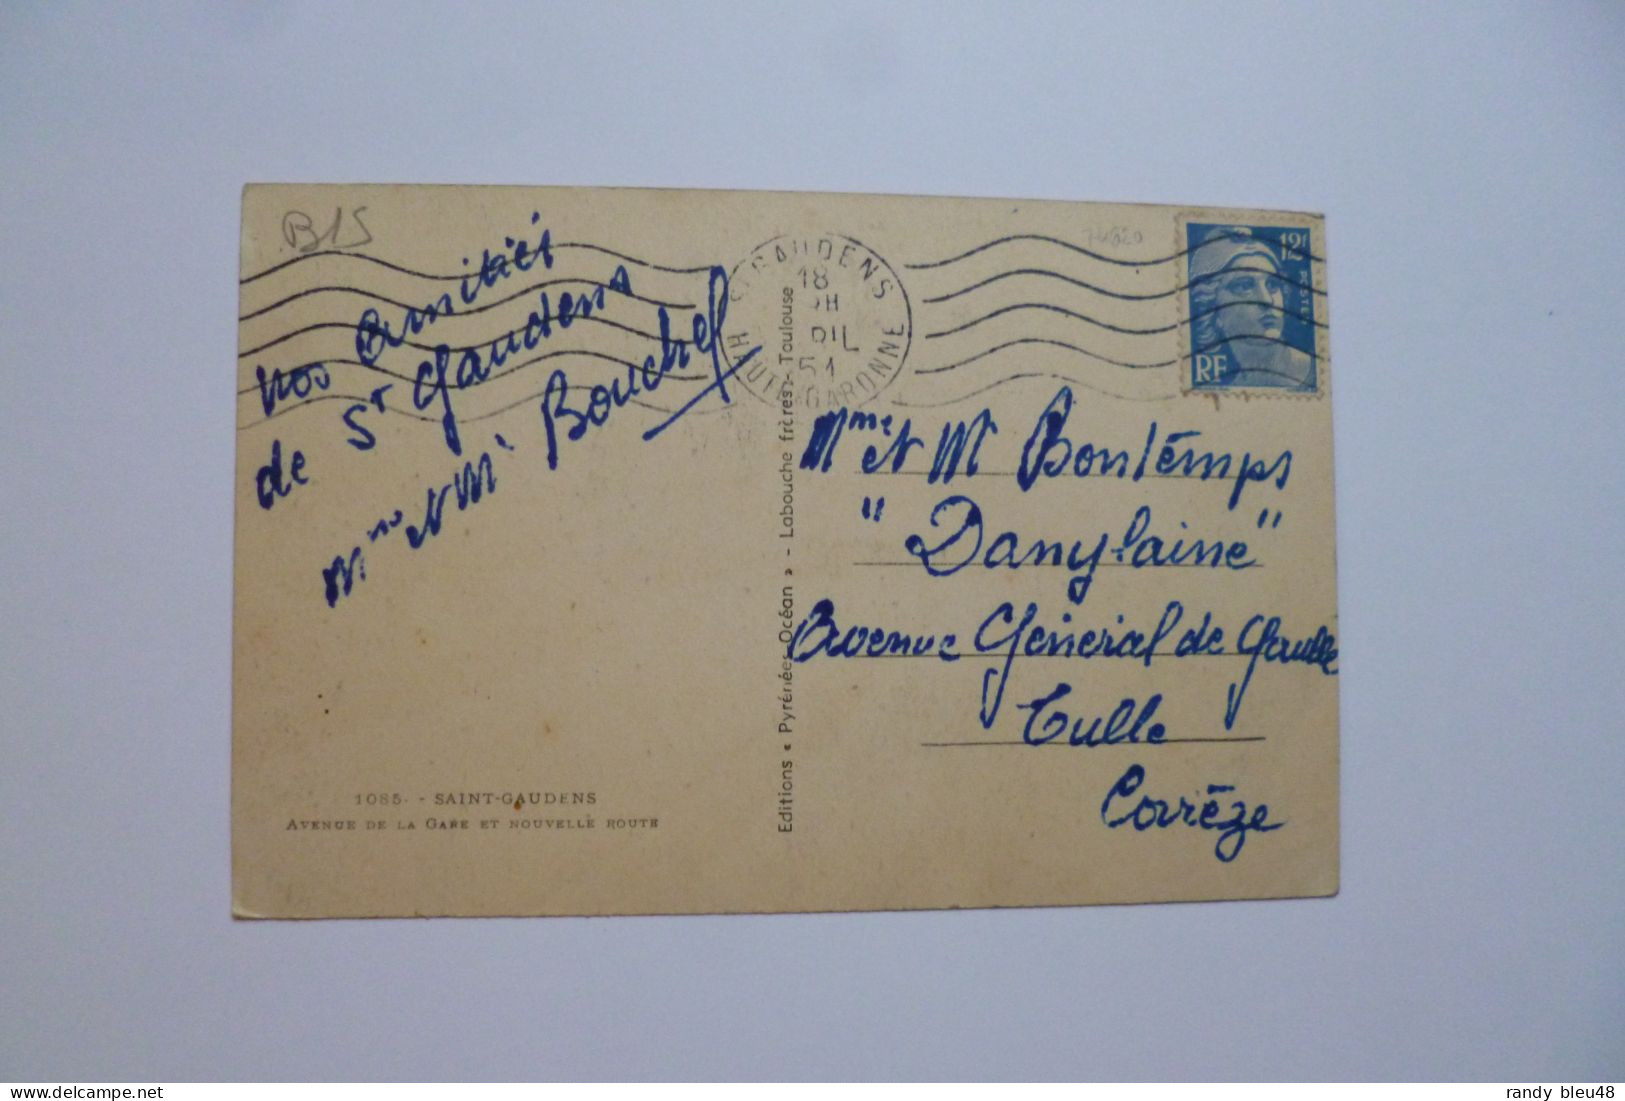 B15
nos amitiés
de St Gaudens
Mme et Mr Bouchel
1085. - SAINT-GAUDENS
AVENUE DE LA GARE ET NOUVELLE ROUTE
Editions « Pyrénées-Océan » - Labouche frères - Toulouse
ST GAUDENS
18
51
HAUTE GARONNE
12F
POSTES
RF
Mme et Mr Bontemps
"Danylaine"
Avenue Général de Gaulle
Tulle
Corrèze
randy bleu48